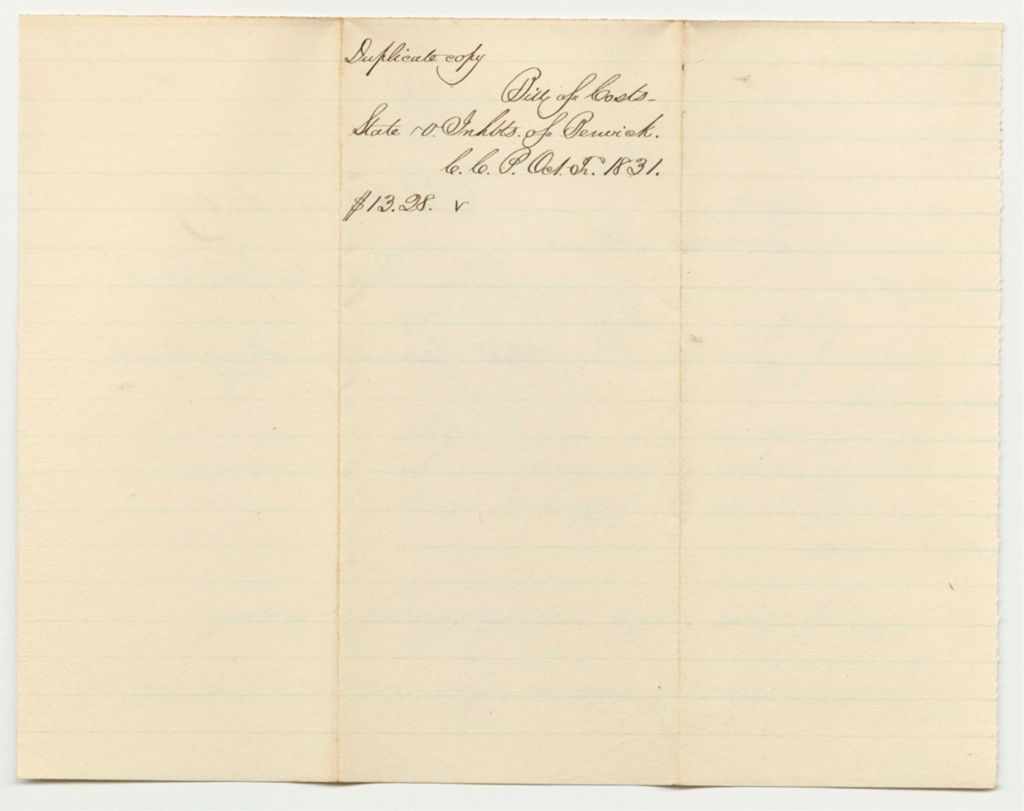 Duplicate copy
Bill of Costs-
State v. Inhbts. of Berwick.
C. C. P. Oct. T. 1831.
$13.28. v